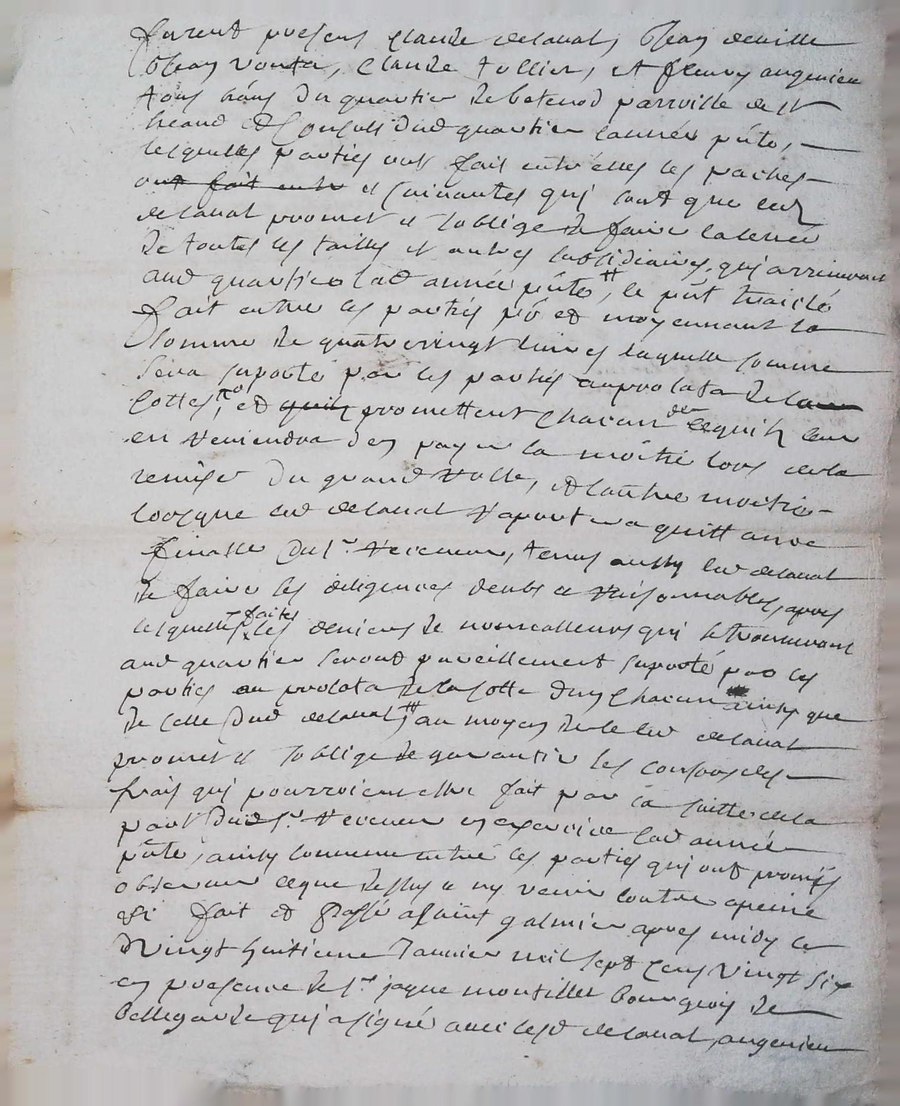 furent presens Claude delaval, Jean deville
Jean , Claude tollier, et fleury angenieu
tous du quartier de parroisse de St
heand et Consuls dud quartier lannée pnte,
lesquelles parties ont fait entre elles les paches
ont fait entre et suivantes qui sont que led
delaval promet et soblige de faire la levée
de toutes les tailles et autres subsidiaires, qui arriveront
aud quartier lad année pnte, le pnt traicté
fait entre les parties et moyennant la
somme de quatre vingt livres laquelle somme
sera suporté par les parties au prolata de
Cottes, et promettent chacun ce quil leur
en reviendra den payer la moitié lors de la
remise du grand rolle, et lautre moitié
lorsque led delaval raportera quittance
finalle du Sr. receveur, tenu aussy led delaval
de faire les diligences deubs et raisonnables, apres
lesquelles faites les deniers de qui se trouveront
aud quartier seront pareillement suporté par les
parties au prolata de la cotte dun chacun ainsy que
de celle dud delaval, au moyen de ce led delaval
promet et soblige de garantir les consors des
frais qui pourroient estre fait par la suitte de la
part dud Sr. receveur en exercice lad année
pnte, ainsy convenu entre les parties qui ont promis
observer ce que dessus et ny venir contre a peine
fait et passé a saint galmier apres midy le
vingt huitieme Janvier mil sept cens vingt six
en presence de Sr. jaque montillet bourgeois de
bellegarde qui a signé avec lesd delaval, angenieu